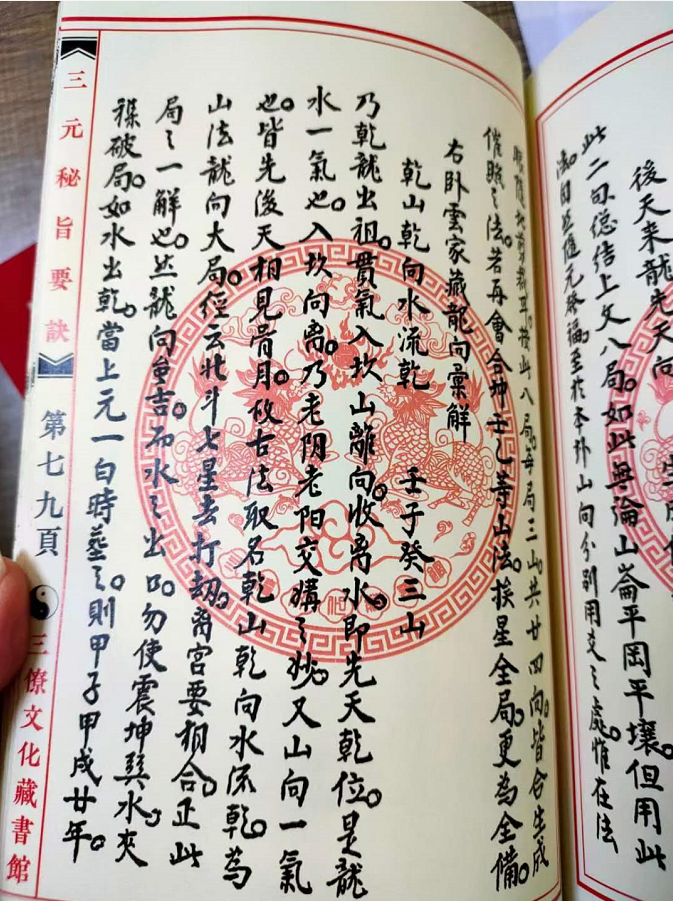 後天来龍先天向
此二句總結上文八局。如此無論山崙平岡平壤。但用此
法。因 元發福。至於本卦山向分别用爻之處。惟在法
按此八局。每局三山。共廿四向。皆合生成
催照之法。若再會合坤壬乙等山法。挨星全局。更為全備。
右卧雲家藏龍向彙解
乾山乾向水流乾 壬子癸三山
乃乾龍出祖。貫氣入坎山離向。收离水。即先天乾位。是龍
水一氣也。入坎向离。乃老阴老阳交媾之妙。又山向一氣
也。皆先後天相見骨月。故古法取名乾山乾向水流乾。為
山法龍向大局。經云北斗七星去打劫。离宫要相合。正此
局之一解也。然龍向亶吉。而水之出口。勿使震坤巽水夾
襍破局。如水出乾。當上元一白時葬之。則甲子甲戍廿年。
三元秘旨要訣
第七九頁
三僚文化藏書館